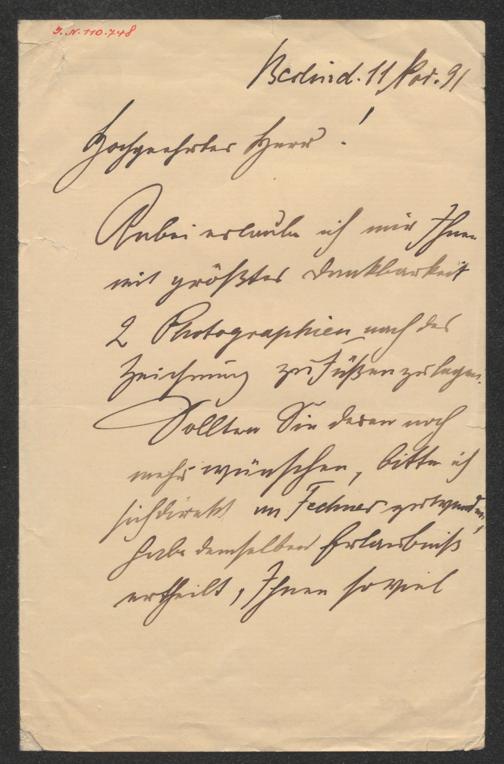 J.N. 110.748
Berlin d. 11 Nov. 91
Hochgeehrter Herr!
Anbei erlaube ich mir Ihnen
mit größter Dankbarkeit
2 Photographien nach der
Zeichnung zu Füßen zu legen.
Sollten Sie deren noch
mehr wünschen, bitte ich
sich direkt an Fechner zu wenden,
habe demselben Erlaubniß
ertheilt, Ihnen so viel